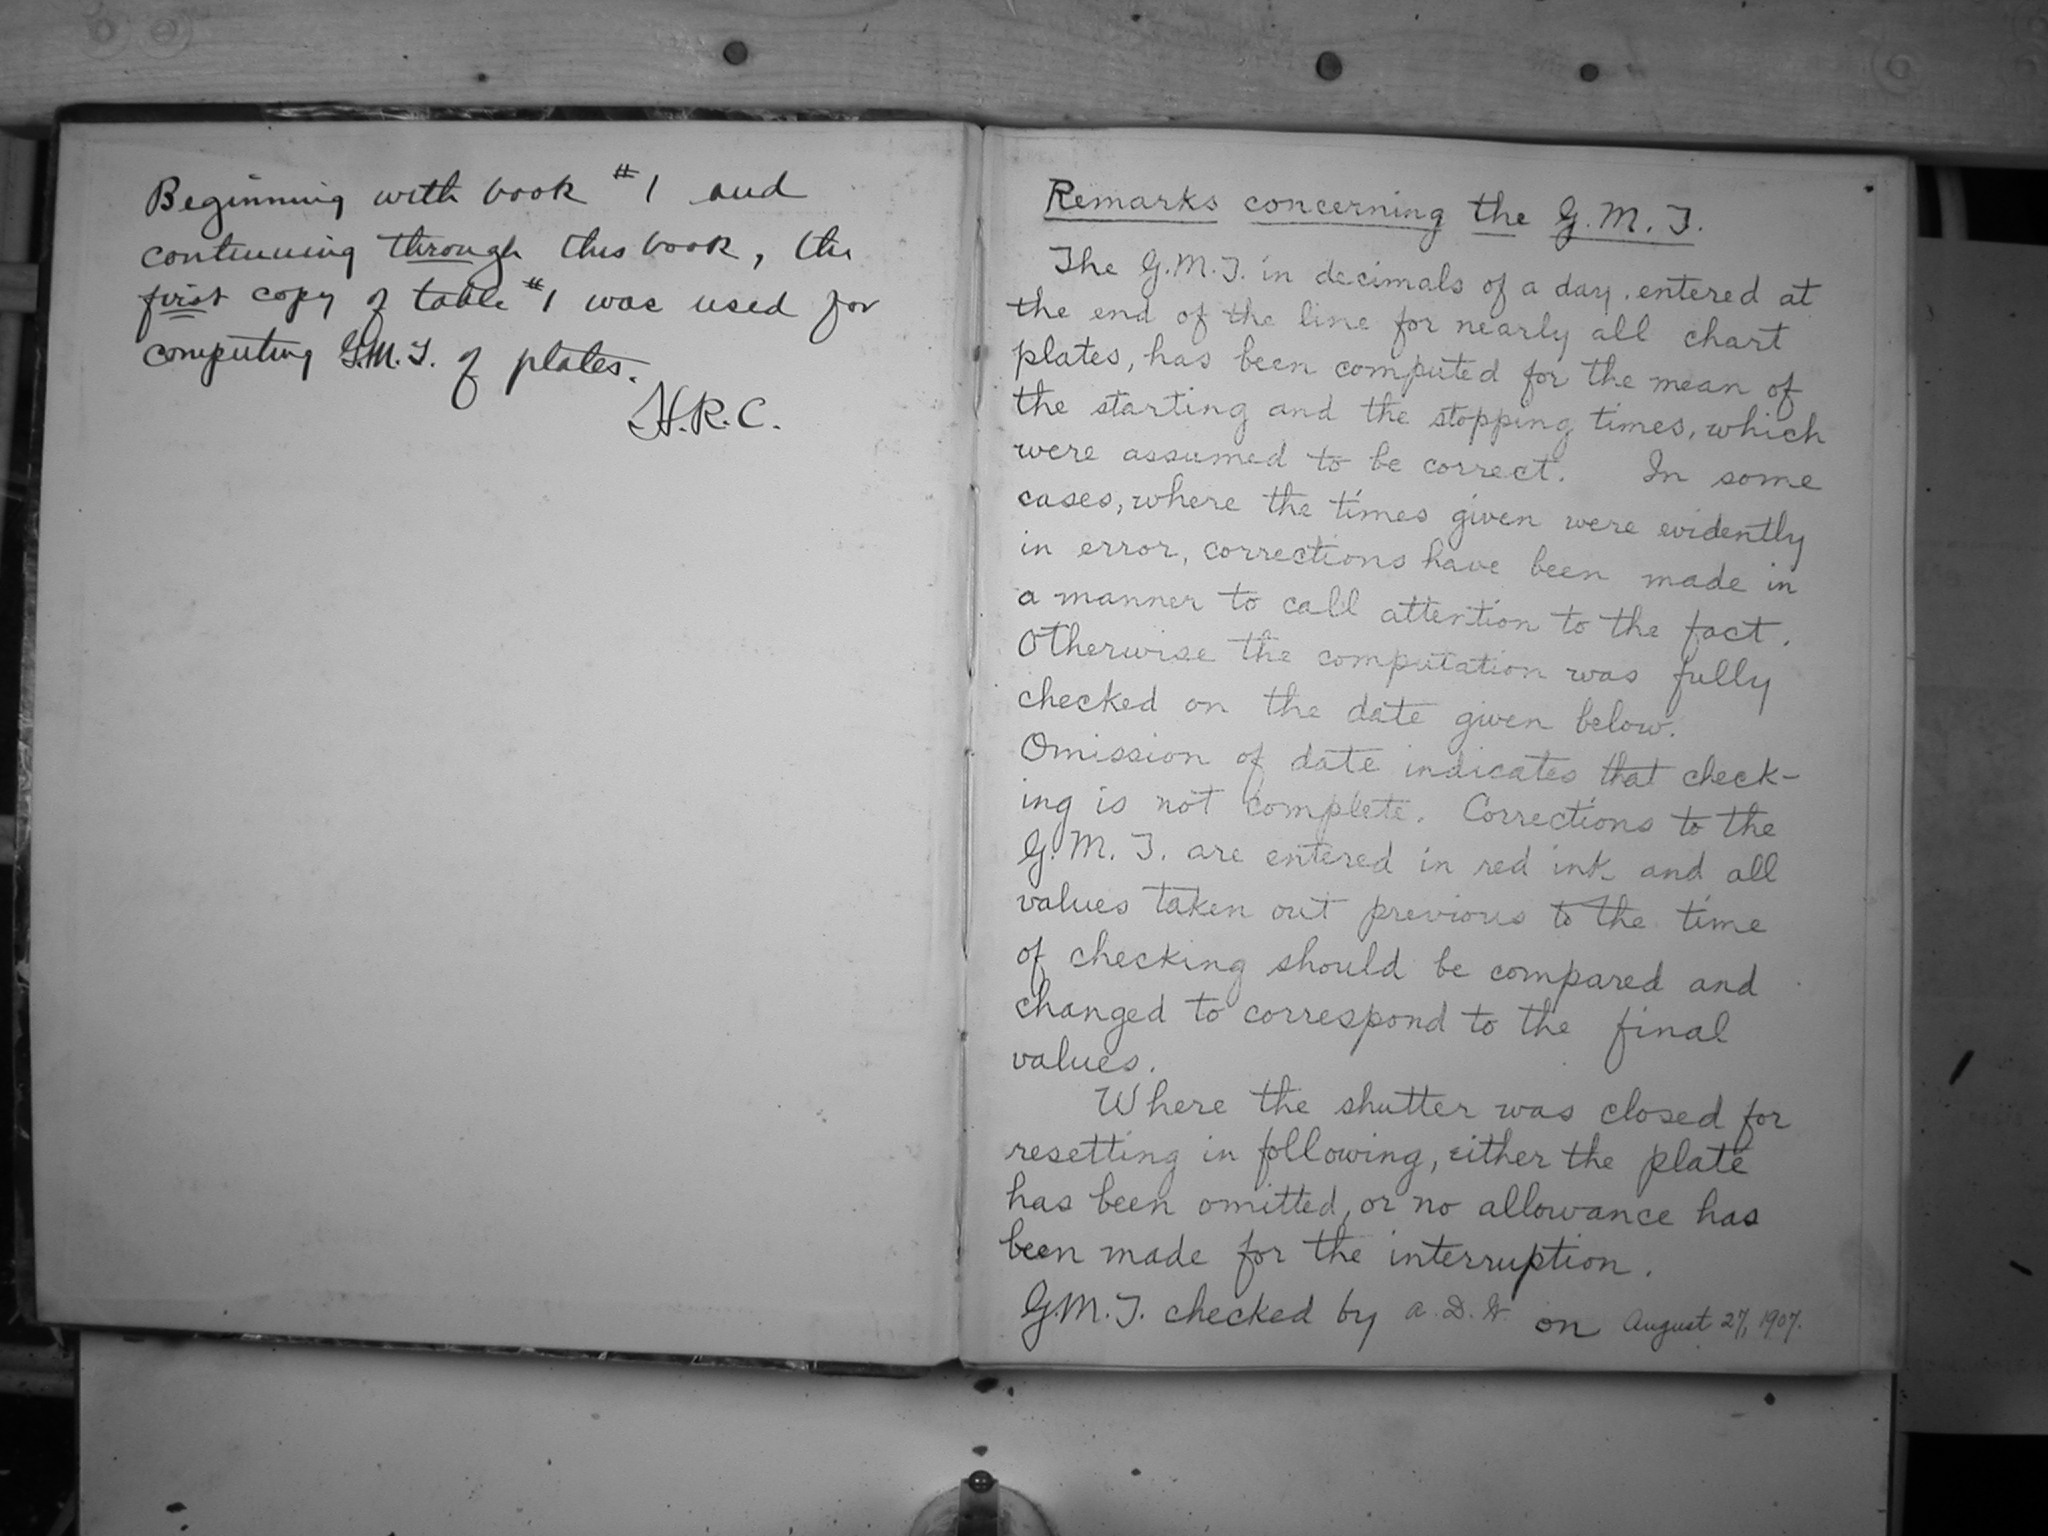 Beginning with book #1 and
continuing through this book, the
first copy of table #1 was used for
computing G.M.T. of plates.
H.R.C.
Remarks concerning the G.M.T.
The G.M.T. in decimals of a day, entered at
the end of the line for nearly all chart
plates, has been computed for the mean of
the starting and the stopping times, which
were assumed to be correct. In some
cases, where the times given were evidently
in error, corrections have been made in
a manner to call attention to the fact.
Otherwise the computation was fully
checked on the date given below.
Omission of date indicates that check-
ing is not complete. Corrections to the
G.M.T. are entered in red ink and all
values taken out previous to the time
of checking should be compared and
changed to correspond to the final
values.
Where the shutter was closed for
resetting in following, either the plate
has been omitted, or no allowance has
been made for the interruption.
G.M.T. checked by a. D. W. on August 27, 1907.